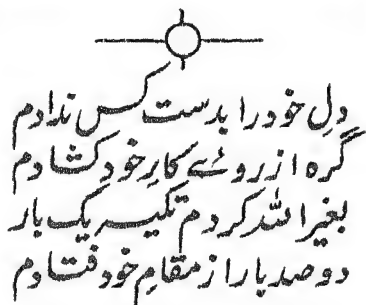 دلِ خود را بدست کس ندادم
گره از روئے کارِ خود کشادم
بغیر اللہ کردم تکیہ یک بار
دو صد بار از مقامِ خود فتادم